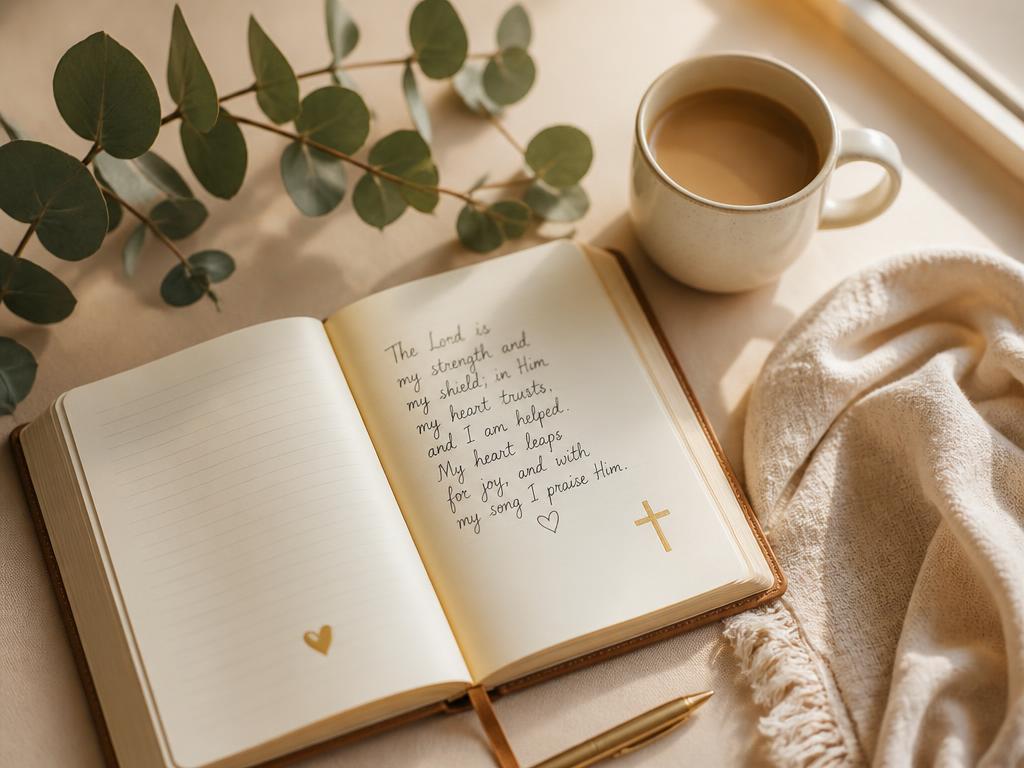 The Lord is
my strength and
my shield; in Him
my heart trusts,
and I am helped.
My heart leaps
for joy, and with
my song I praise Him.